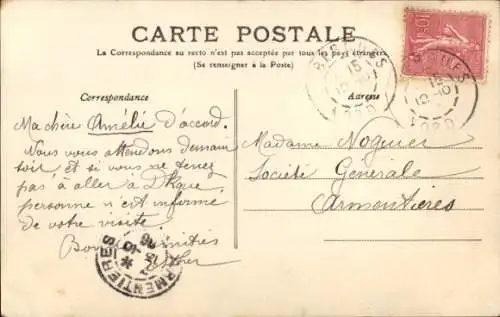 CARTE POSTALE
La Correspondance au recto n'est pas acceptée par tous les pays étrangers.
(Se renseigner à la Poste)
Correspondance
Adresse
Ma chère Amélie D'accord.
Nous vous attendons demain
soir, et si vous ne tenez
pas à aller à Dkque,
personne n'est informé
de votre visite.
Bonnes amitiés
Esther
Madame Noguer
Société Générale
Armentières
ARMENTIERES
NORD
10